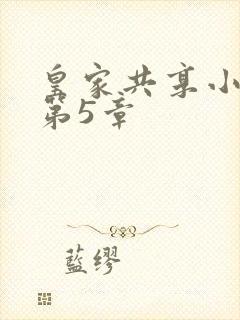 皇家共享小
第5章
藍缪